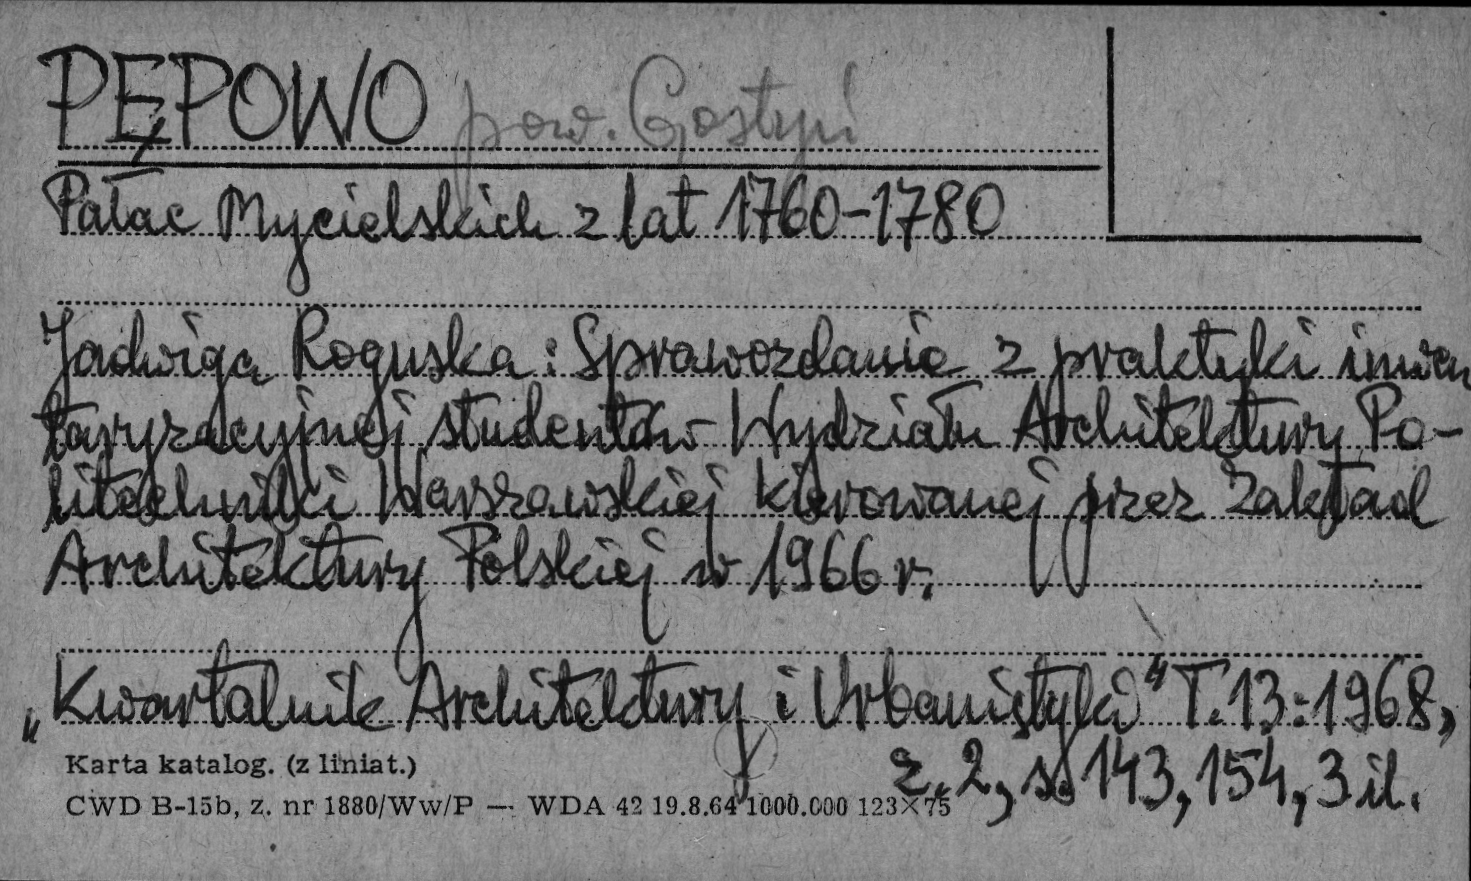 PĘPOWO pow. Gostyń
Pałac Mycielskich z lat 1760-1780
Jadwiga Roguska: Sprawozdanie z praktyki inwen
taryzacyjnej studentów Wydziału Architektury Po-
litechniki Warszawskiej kierowanej przez Zakład
Architektury Polskiej w 1966 r.
„Kwartalnik Architektury i Urbanistyki" T.13:1968,
z. 2, s. 143, 154, 3 il.
Karta katalog. (z liniat.)
CWD B-15b, z. nr 1880/Ww/P — WDA 42 19.8.64 1000.000 123×75